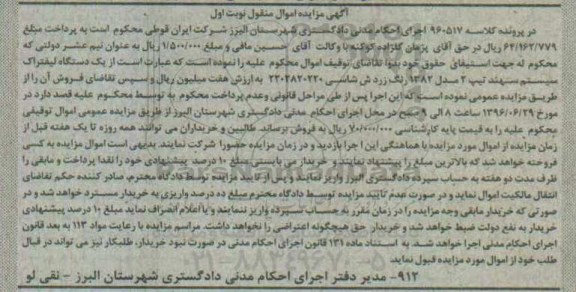 آگهی مزایده اموال منقول نوبت اول
در پرونده کلاسه ۹۶۰۵۱۷ اجرای احکام مدنی دادگستری شهرستان البرز شرکت ایران قوطی محکوم است به پرداخت مبلغ
۶۴/۱۶۲/۷۷۹ ریال در حق آقای پژمان گلزاده کوکنه با وکالت آقای حسین مافی و مبلغ ۱/۵۰۰/۰۰۰ ریال به عنوان نیم عشر دولتی که
محکوم له جهت استیفای حقوق خود بدوا تقاضای توقیف اموال محکوم علیه را نموده است که عبارت است از یک دستگاه لیفتراک
سیستم سهند تیپ ۳ مدل ۱۳۸۲ رنگ زرد ش شاسی ۲۲۰۲۸۲۰۲۲۰ به ارزش هفت میلیون ریال و سپس تقاضای فروش آن را از
طریق مزایده عمومی نموده است که این اجرا پس از طی مراحل قانونی و عدم پرداخت محکوم به توسط محکوم علیه قصد دارد در
مورخ ۱۳۹۶/۰۶/۲۹ ساعت ۸ الی ۹ صبح در محل اجرای احکام مدنی دادگستری شهرستان البرز از طریق مزایده عمومی اموال توقیفی
محکوم علیه را به قیمت پایه کارشناسی ۷۰/۰۰۰/۰۰۰ ریال به فروش برساند. طالبین و خریداران می توانند همه روزه تا یک هفته قبل از
زمان مزایده از اموال مورد مزایده با هماهنگی این اجرا بازدید و در زمان مزایده حضورا شرکت نمایند. بدیهی است اموال مزایده به کسی
فروخته خواهد شد که بالاترین مبلغ را پیشنهاد نمایند و خریدار می بایستی مبلغ ۱۰ درصد پیشنهادی خود را نقدا پرداخت و مابقی را
ظرف مدت دو هفته به حساب سپرده دادگستری البرز واریز نمایند و پس از تایید مزایده توسط دادگاه محترم، صادر کننده حکم تقاضای
انتقال مالکیت اموال نماید و در صورت عدم تایید مزایده توسط دادگاه محترم مبلغ ده درصد واریزی به خریدار مسترد خواهد شد و در
صورتی که خریدار مابقی وجه مزایده را در زمان مقرر به حساب سپرده واریز ننمایند و یا اعلام انصراف نماید مبلغ ۱۰ درصد پیشنهادی
خریدار به نفع دولت ضبط خواهد شد و خریدار حق هیچگونه اعتراضی را نخواهد داشت. مراسم مزایده با رعایت مواد ۱۱۳ به بعد قانون
اجرای احکام مدنی اجرا خواهد شد. به استناد ماده ۱۳۱ قانون اجرای احکام مدنی در صورت نبود خریدار، طلبکار نیز می تواند در قبال
طلب خود از اموال مورد مزایده قبول نماید.
۹۱۲- مدیر دفتر اجرای احکام مدنی دادگستری شهرستان البرز - نقی لو